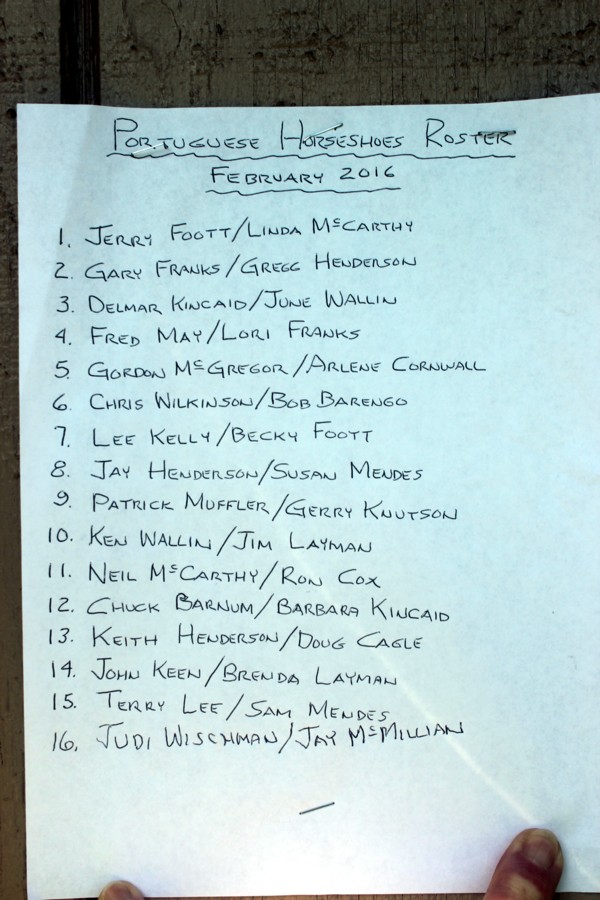 PORTUGUESE HORSESHOES ROSTER
FEBRUARY 2016
1. JERRY FOOTT/LINDA McCARTHY
2. GARY FRANKS/GREGG HENDERSON
3. DELMAR KINCAID/JUNE WALLIN
4. FRED MAY/LORI FRANKS
5. GORDON McGREGOR/ARLENE CORNWALL
6. CHRIS WILKINSON/BOB BARENGO
7. LEE KELLY/BECKY FOOTT
8. JAY HENDERSON/SUSAN MENDES
9. PATRICK MUFFLER/GERRY KNUTSON
10. KEN WALLIN/JIM LAYMAN
11. NEIL McCARTHY/RON COX
12. CHUCK BARNUM/BARBARA KINCAID
13. KEITH HENDERSON/DOUG CAGLE
14. JOHN KEEN/BRENDA LAYMAN
15. TERRY LEE/SAM MENDES
16. JUDI WISCHMAN/JAY McMILLIAN